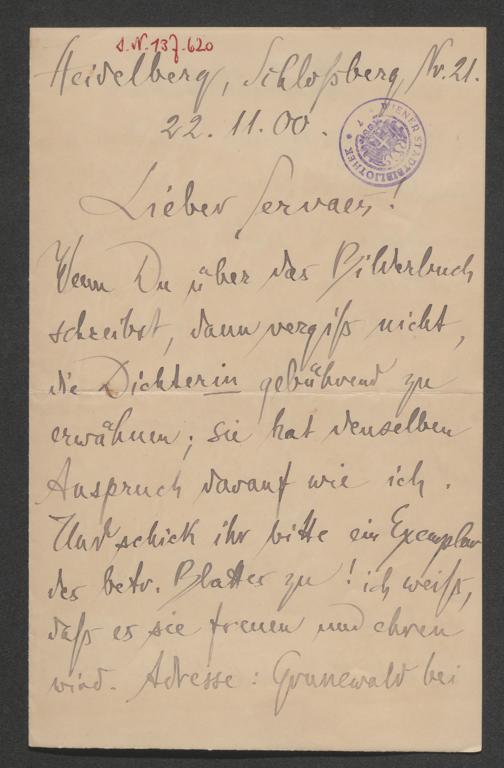 I.N. 137.620
Heidelberg, Schloßberg, Nr. 21.
22. 11. 00.
WIENER STADTBIBLIOTHEK
Lieber Servaes!
Wenn Du über das Bilderbuch
schreibst, dann vergiß nicht,
die Dichterin gebührend zu
erwähnen; sie hat denselben
Anspruch darauf wie ich.
Und schick ihr bitte ein Exemplar
des betr. Blattes zu! ich weiß,
daß es sie freuen und ehren
wird. Adresse: Grunewald bei